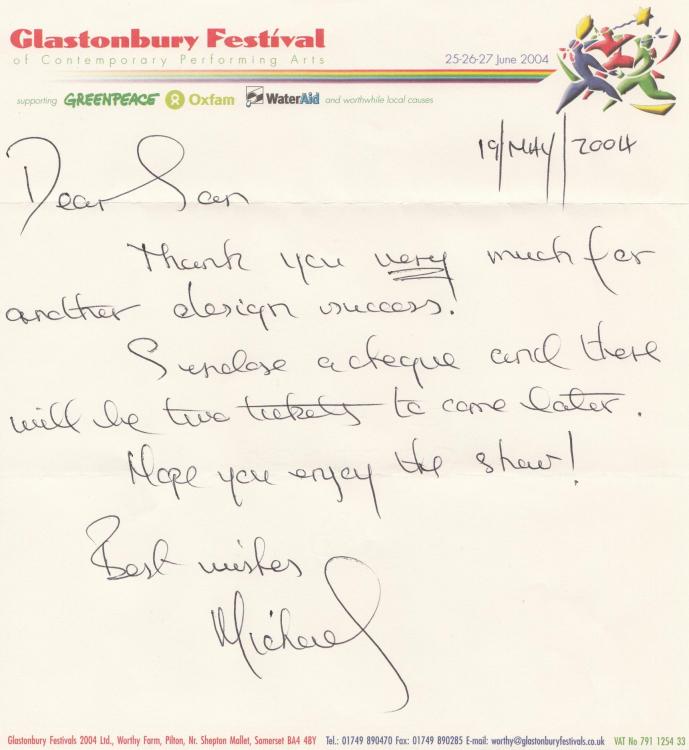 Glastonbury Festival
of Contemporary Performing Arts
25-26-27 June 2004
supporting GREENPEACE Oxfam WaterAid and worthwhile local causes
19/MAY/2004
Dear Ian
Thank you very much for
another design success!
I enclose a cheque and there
will be two tickets to come later.
Hope you enjoy the show!
Best wishes
Michael
Glastonbury Festivals 2004 Ltd., Worthy Farm, Pilton, Nr. Shepton Mallet, Somerset BA4 4BY Tel.: 01749 890470 Fax: 01749 890285 E-mail: worthy@glastonburyfestivals.co.uk VAT No 791 1254 33